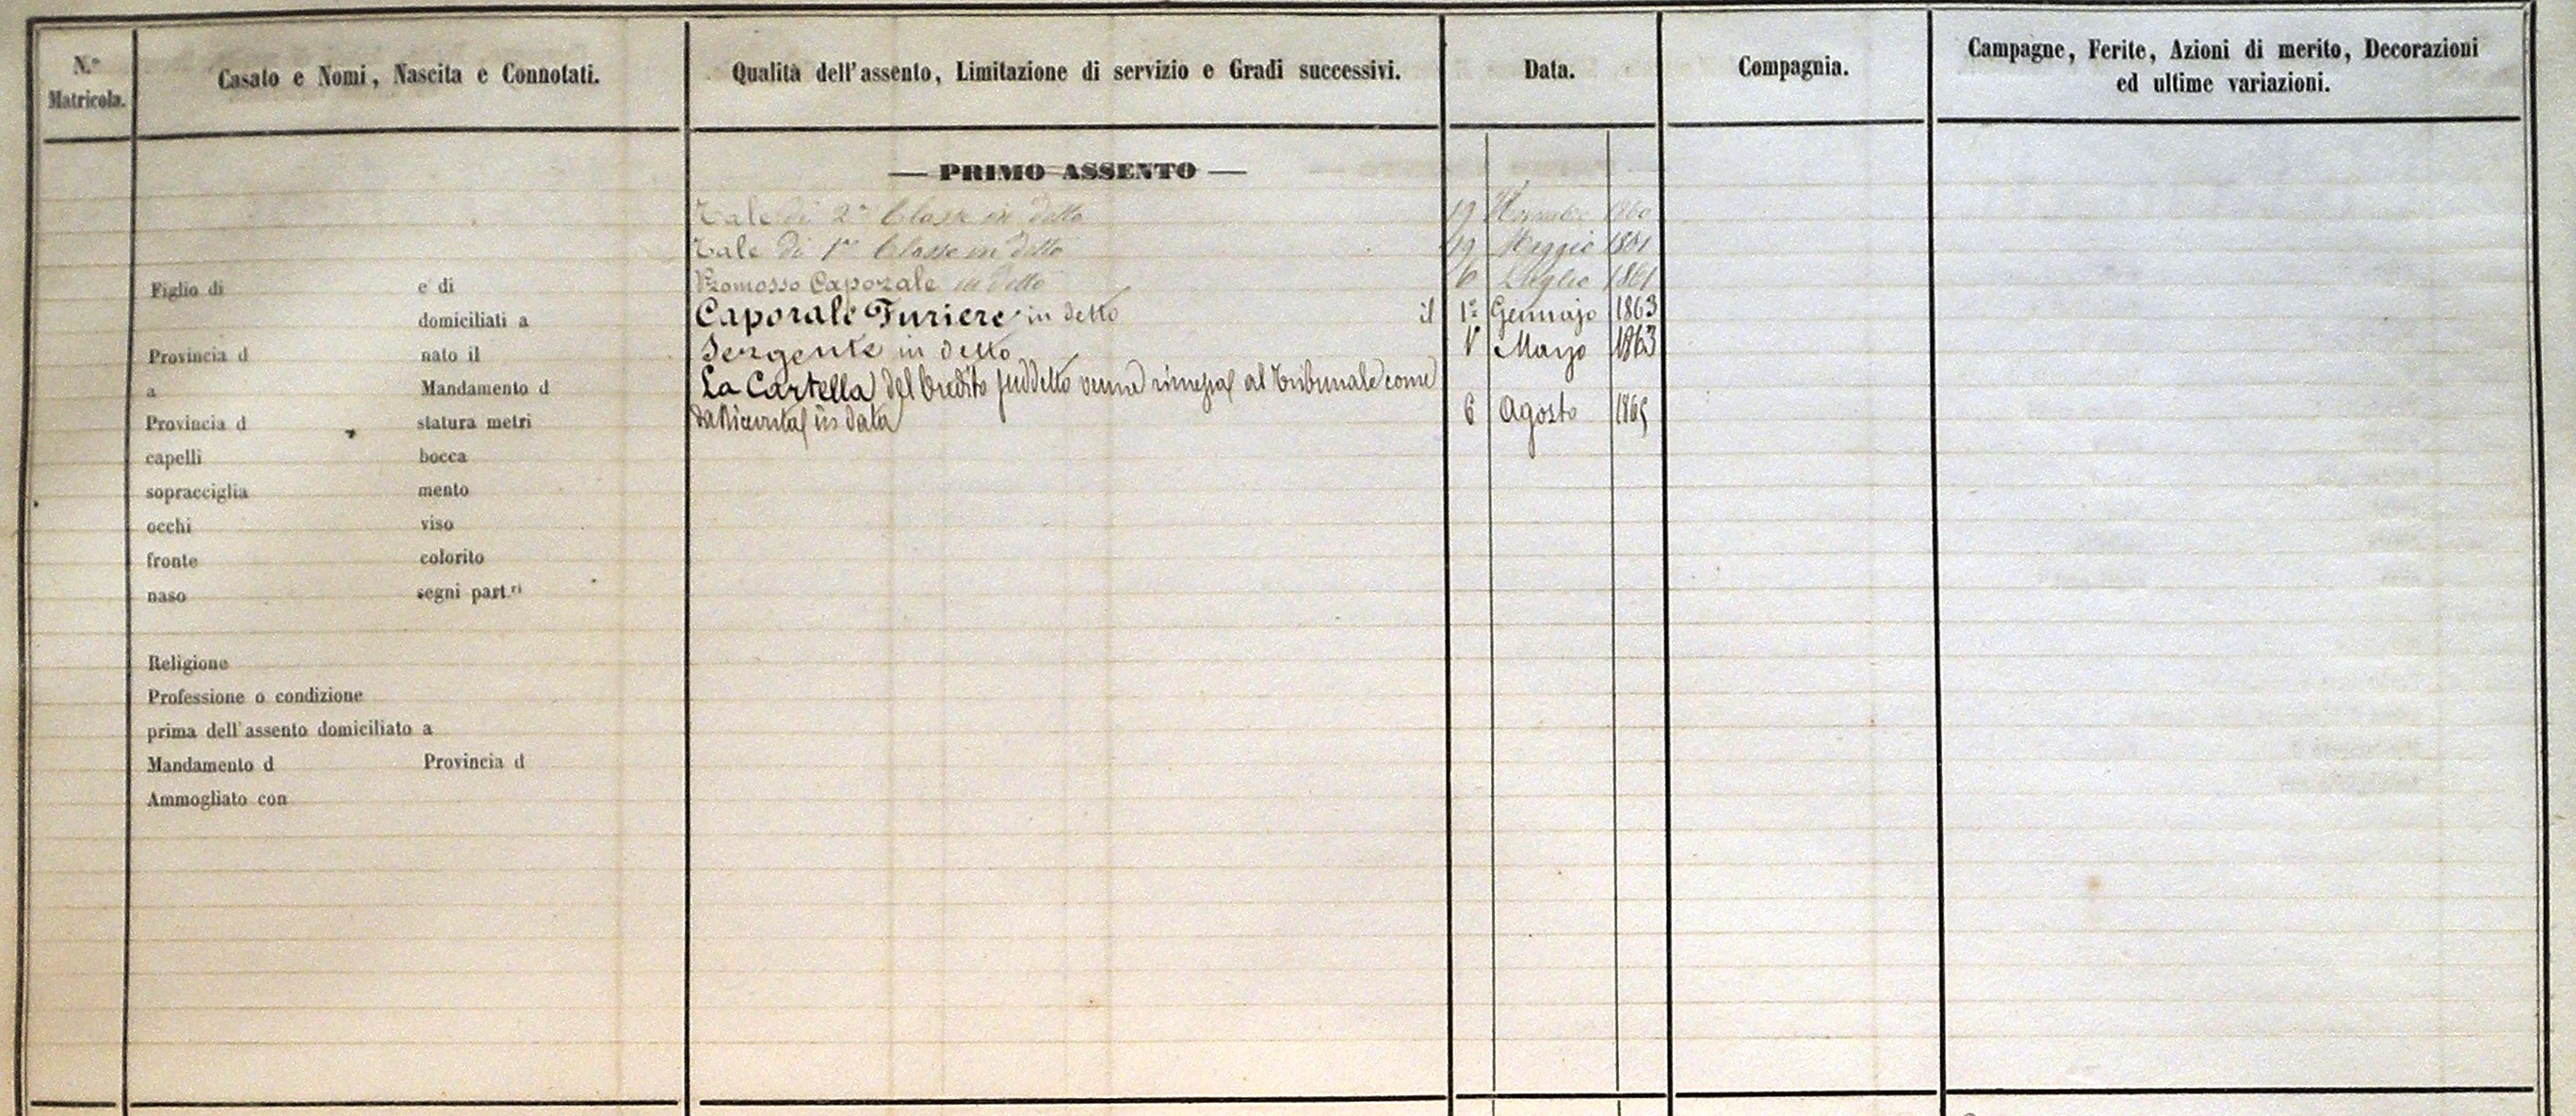 N.º Matricola.
Casato e Nomi, Nascita e Connotati.
Qualità dell'assento, Limitazione di servizio e Gradi successivi.
Data.
Compagnia.
Campagne, Ferite, Azioni di merito, Decorazioni
ed ultime variazioni.
— PRIMO ASSENTO —
Tale di 2ª Classe in detto 19 Novembre 1860
Tale di 1ª Classe in detto 19 Maggio 1861
Promosso Caporale in detto 6 Luglio 1861
Caporale Furiere in detto il 1º Gennajo 1863
Sergente in detto 1º Marzo 1863
La Cartella del Credito suddetto venne rimessa al Tribunale come
da Ricevuta in data 6 Agosto 1865
Figlio di e di
domiciliati a
Provincia d nato il
a Mandamento d
Provincia d statura metri
capelli bocca
sopracciglia mento
occhi viso
fronte colorito
naso segni part.ri
Religione
Professione o condizione
prima dell'assento domiciliato a
Mandamento d Provincia d
Ammogliato con